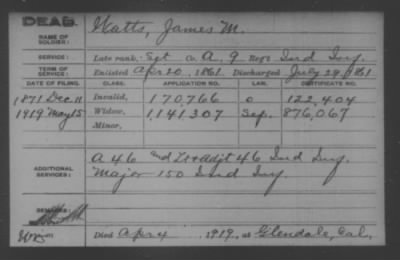 DEAD.
NAME OF SOLDIER: Watts, James M.
SERVICE: Late rank, Sgt Co. A, 9 Reg't Ind Inf.
TERM OF SERVICE: Enlisted Apr 20, 1861 Discharged July 29, 1861
DATE OF FILING. CLASS. APPLICATION NO. CERTIFICATE NO.
1871 Dec 11 Invalid, 170,766 0 122,404
1919 May 15 Widow, 1,141,307 Sep. 876,067
Minor,
ADDITIONAL SERVICES: A 46 and Lt + Adjt 46 Ind Inf.
Major 150 Ind Inf
REMARKS:
Died Apr 4, 1919, at Glendale, Cal.